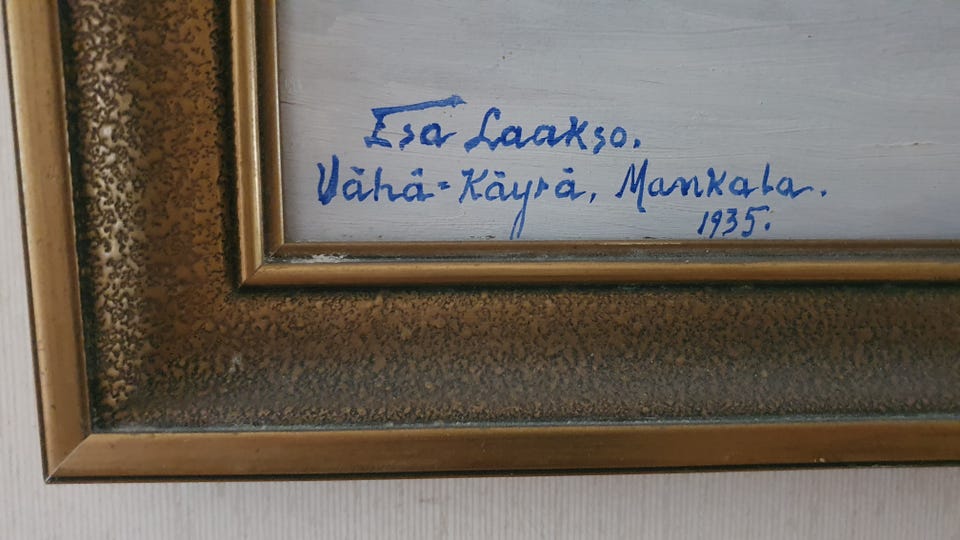 Esa Laakso.
Vähä-Käyrä, Mankala.
1935.